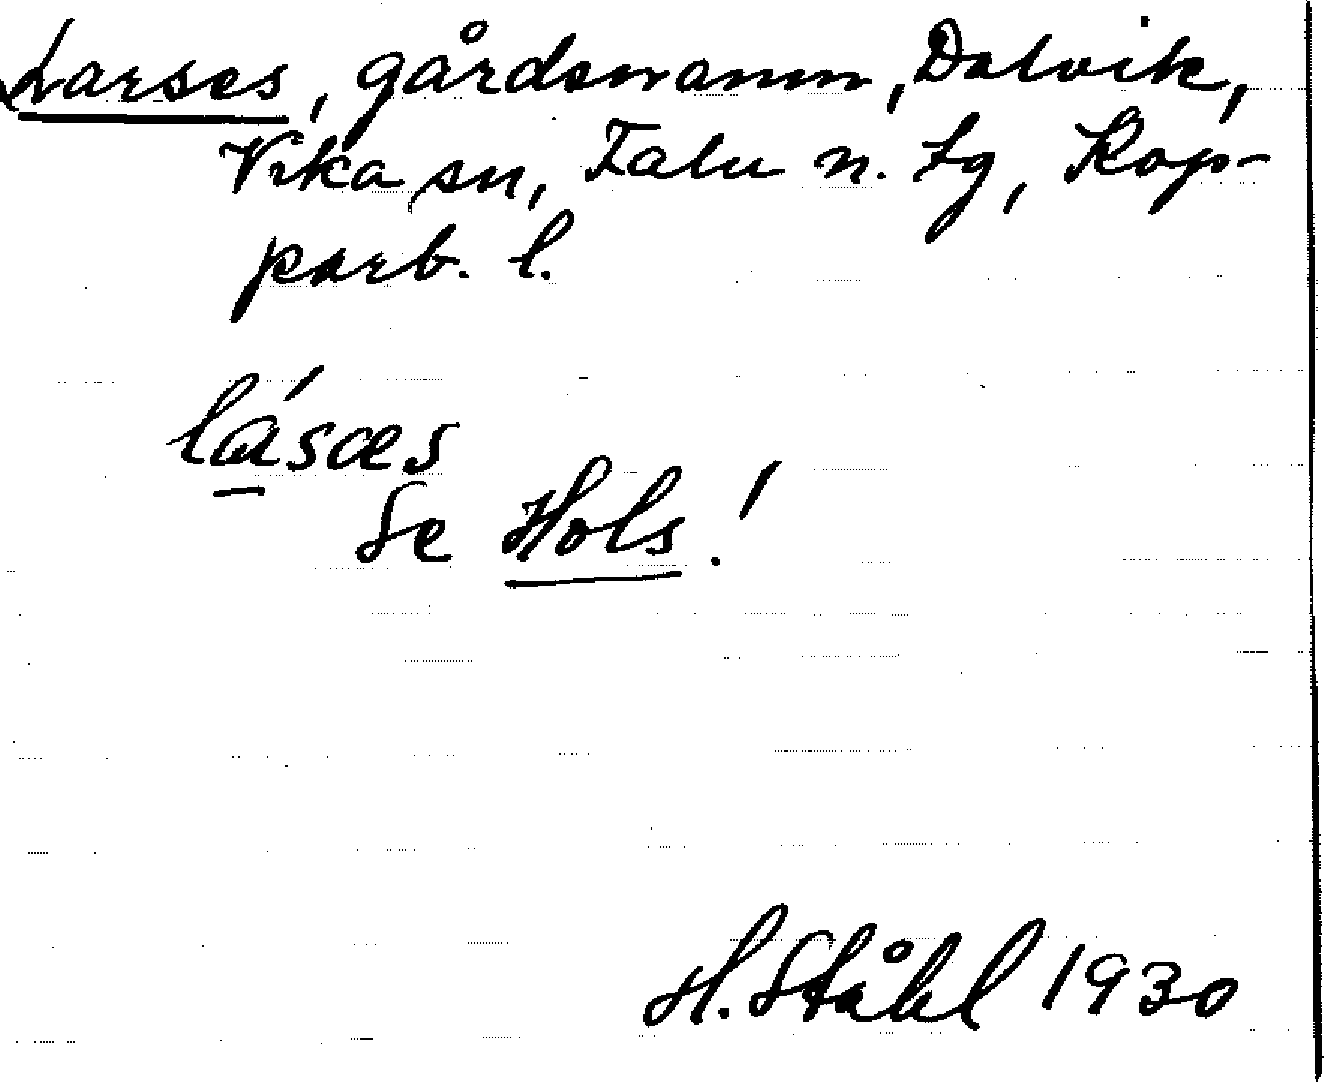 Larses, gårdsnamn, Dalvik,
Vika sn, Falu n. tg, Kop-
parb. l.
lásæs
Se Hols!
H. Ståhl 1930